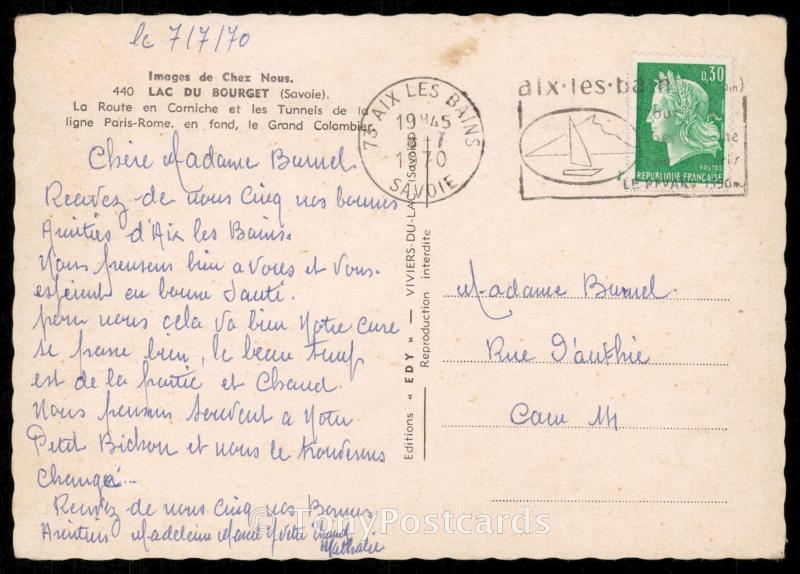 le 7/7/70
Images de Chez Nous.
440 LAC DU BOURGET (Savoie).
La Route en Corniche et les Tunnels de la
ligne Paris-Rome. en fond, le Grand Colombier
Chère Madame Burnel
Recevez de nous Cinq nos bonnes
Amitiés d'Aix les Bains.
Nous pensons bien a Vous et Vous
espérent en bonne Santé.
pour nous cela va bien Notre cure
se passe bien, le beau temps
est de la partie et Chaud.
Nous pensons Souvent a Votre
Petit Bichon et nous le trouverons
changé...
Recevez de nous Cinq nos Bonnes
Amitiés Madeleine Marie Yvette
Nathalie
Editions « EDY » — VIVIERS-DU-LAC (Savoie)
Reproduction interdite
73 AIX LES BAINS
19H45
7
1970
SAVOIE
aix·les·bains
LE REVARD 1550m
0,30
POSTES
REPUBLIQUE FRANÇAISE
Madame Burnel
Rue d'authie
Caen 14
© TonyPostcards